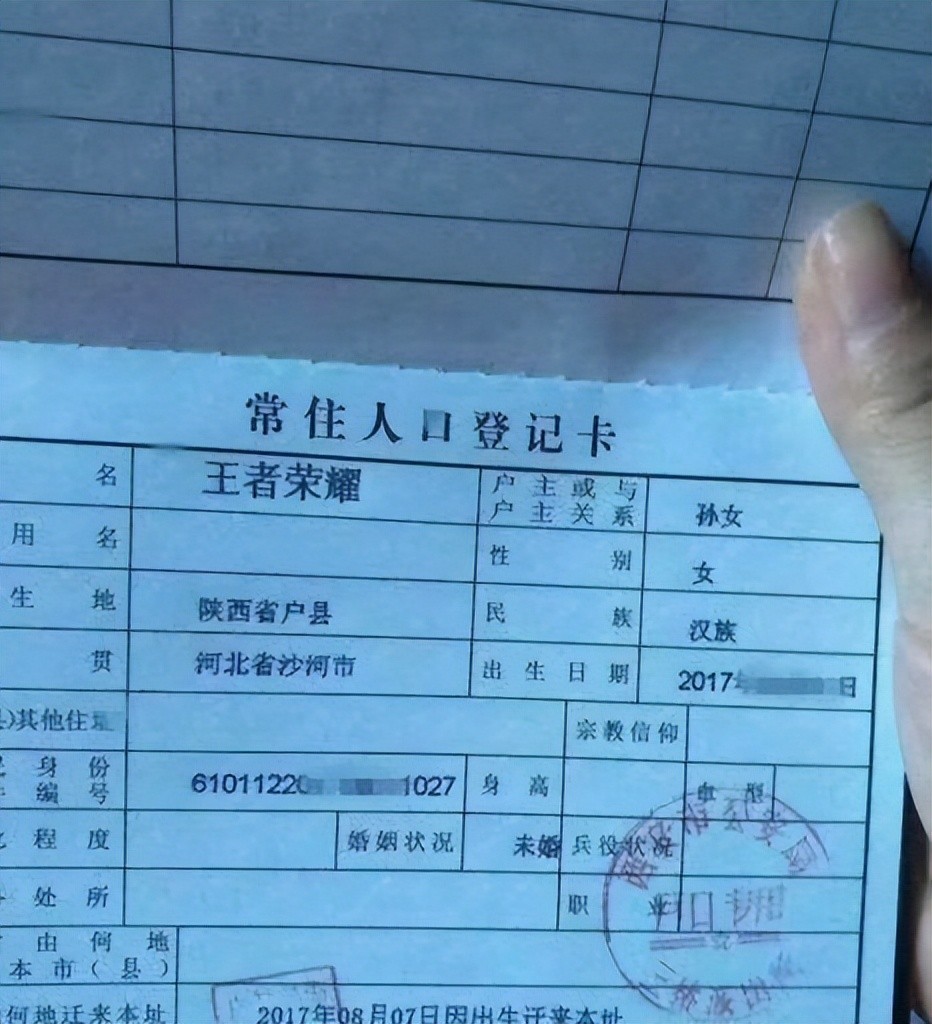 常住人口登记卡
名 王者荣耀 户主或与户主关系 孙女
用名 性别 女
生地 陕西省户县 民族 汉族
贯 河北省沙河市 出生日期 2017 日
其他住 宗教信仰
身份编号 6101122 1027 身高 血型
程度 婚姻状况 未婚 兵役状况
处所 职业
户口专用
由何地
本市(县)
何地迁来本址 2017年08月07日因出生迁来本址